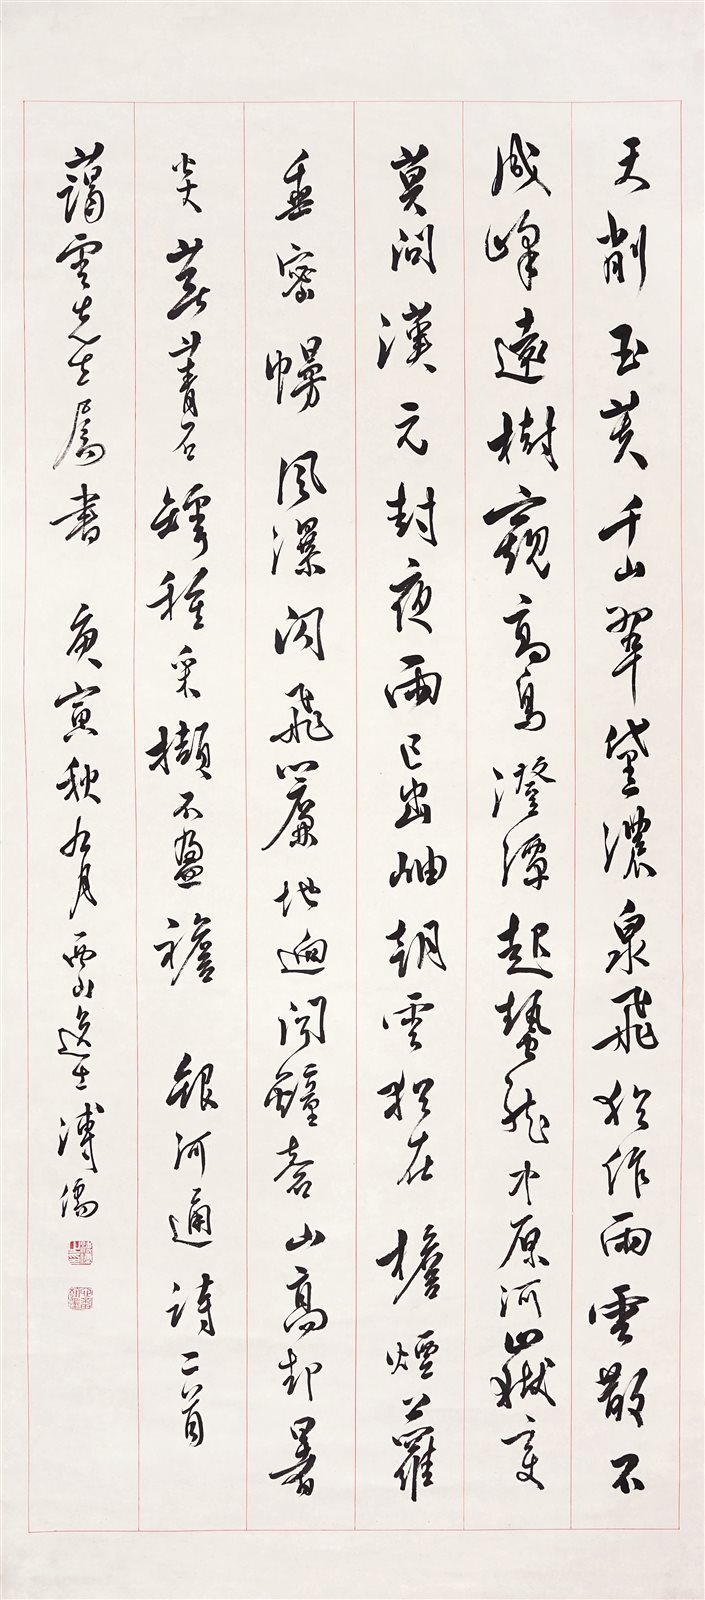 天削玉芙千山翠黛濃泉飛猶作雨雲散不
成峰遠樹窺高鳥澄潭起蟄龍中原河嶽變
莫問漢元封夜雨已出岫朝雲猶在檐煙蘿
垂密幔風瀑閃飛簾地迥聞鐘杳山高却暑
炎蕪菁石罅種采擷不盈襜 銀河通詩二首
藹雲先生屬書 庚寅秋九月西山逸士溥儒